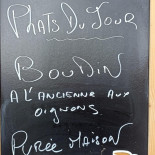 PLATS DU JOUR
BOUDIN
A L'ANCIENNE AUX
OIGNONS.
PURÉE MAISON